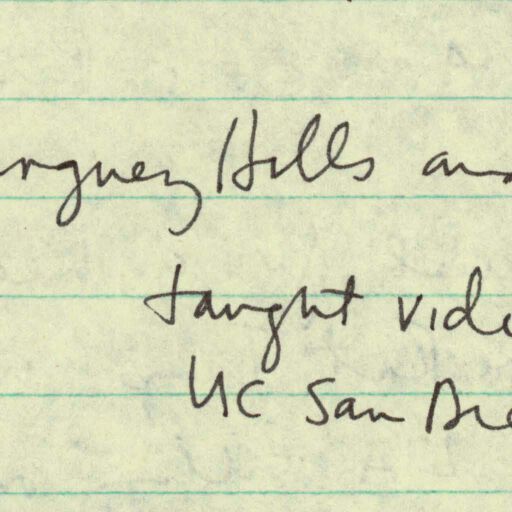 inguez Hills and
taught vide
UC San Die